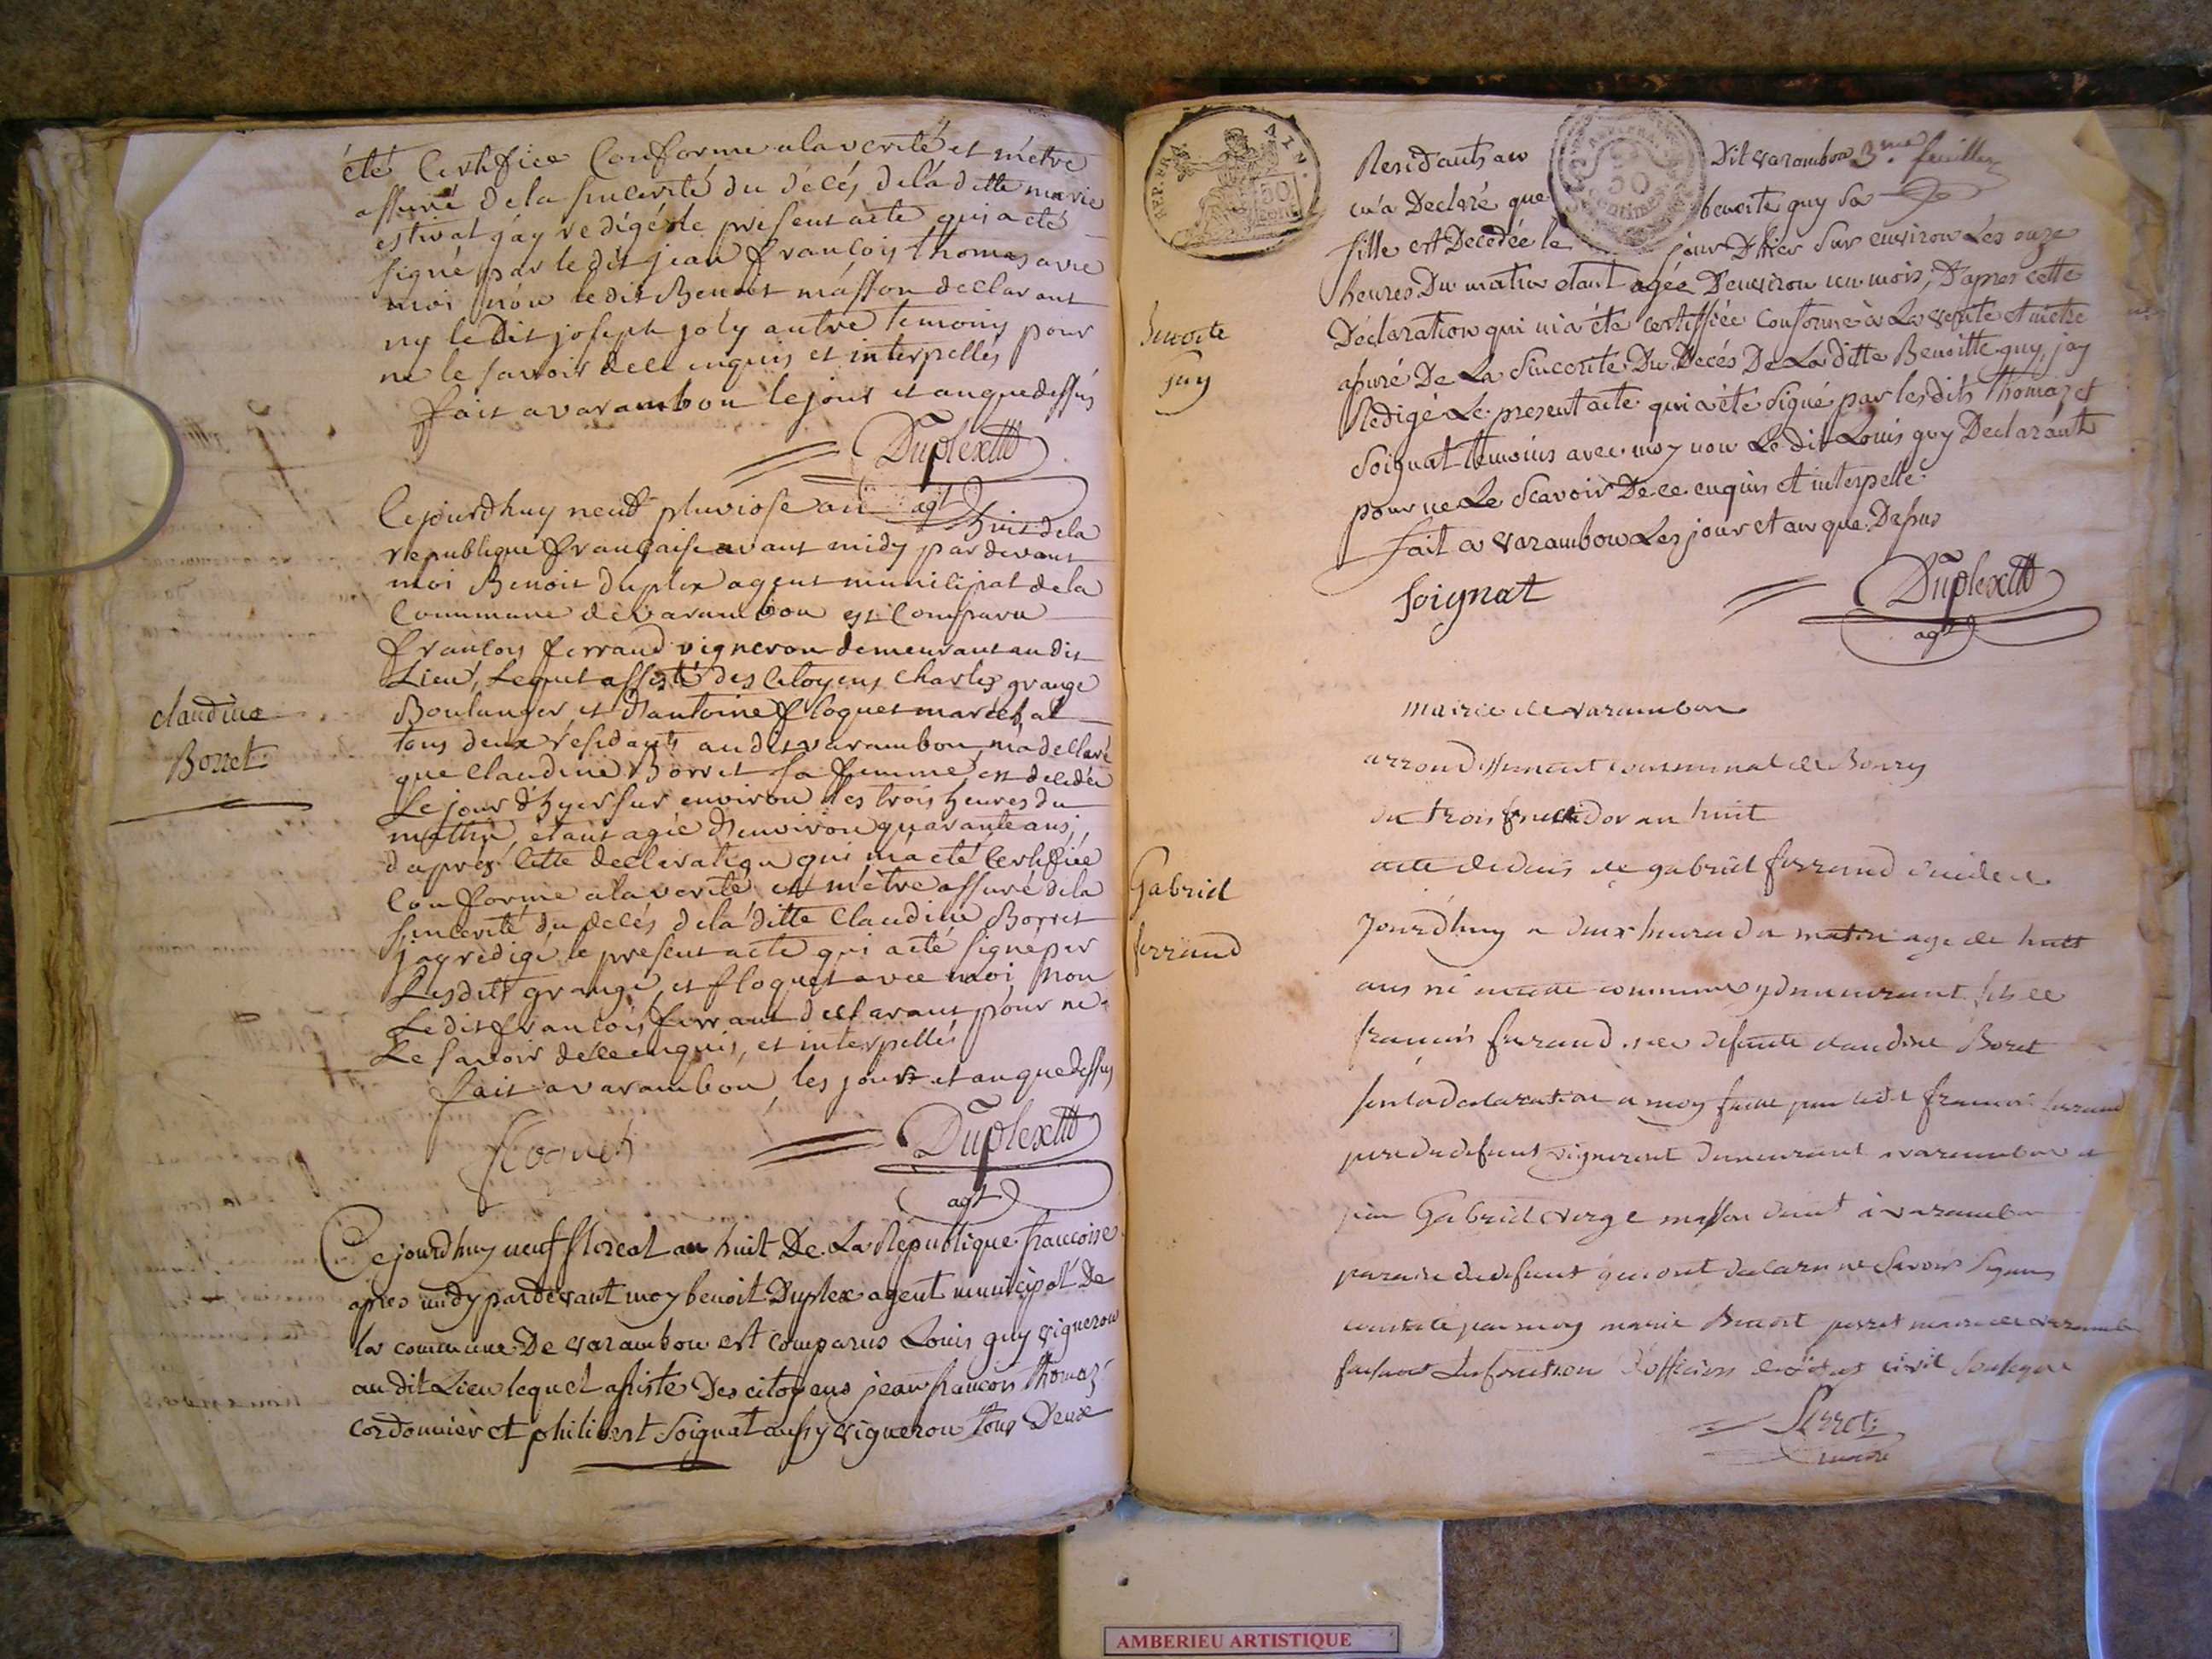 été Certifiee Conforme a la verité et m'etre
assuré de la sincerité du décés de la ditte marie
estivat j'ay redigé le present acte qui a eté
signé par le dit jean françois thomas avec
moi non le dit Benoit masson declarant
ny le Dit joseph joly autre temoins pour
ne le savoir de ce enquis et interpellés
fait a varambon le jour et an que dessus
Duplex
agt
Cejourdhuy neuf pluviose an huit de la
republique française avant midy par devant
moi Benoit duplex agent municipal de la
Commune de varambon est Comparu
françois ferrand vigneron demeurant au dit
Lieu, Lequel assisté des Citoyens Charles grange
Boulanger et d'antoine floquet marechal
tous deux residants au dit varambon, m'a declaré
que Claudine Borret sa femme, est decedée
Le jour d'hyer sur environ les trois heures du
mattin, etant agée d'environ quarante ans,
d'apres Cette declaration qui m'a eté Certifiée
Conforme a la verité et m'etre assuré de la
sincerité du decés de la ditte Claudine Borret
j'ay redigé le present acte qui a eté signé par
Lesdits grange, et floquet avec moi non
Le dit françois ferrant declarant pour ne
Le savoir de ce enquis, et interpellés
fait a varambon, les jour et an que dessus
claudine
Borret
floquet
Duplex
agt
Cejourdhuy neuf floreal an huit De La Republique francoise
apres midy pardevant moy benoit Duplex agent municipal De
la commune De varambon est comparus Louis guy vigneron
au dit Lieu lequel assisté Des citoyens jean francois thomas
cordonnier et philibert Soignat aussy vigneron tous Deux
REP. FRA. AIN.
50
cent.
50
centimes
3me feuillet
Residants au Dit varambon
m'a Declaré que benoite guy sa
fille est Decedée le jour D'hier sur environ Les onze
heures Du matin etant agée D'environ un mois, D'apres cette
Déclaration qui m'a été certiffiée conforme à La verité et m'etre
assuré De La Sincerité Du Decés De La ditte Benoitte guy, jay
Redigé Le present acte qui a été signé par lesdits thomas et
Soignat temoins avec moy non Le dit Louis guy Declarant
pour ne Le Scavoir De ce enquis et interpellé
fait a varambon Les jour et an que Dessus
benoite
guy
Soignat
Duplex
agt
mairie de varambon
arrondissement communal de Bourg
du trois fructidor an huit
acte de deces de gabriel ferrand decedé
jourdhuy a deux heures du matin age de huit
ans né cette commune y demeurant fils de
francois ferrand et de defunte claudine Boret
sur la declaration a moy faite par ledit francois ferrand
pere du defunt vigneront demeurant a varambon et
par Gabriel verge masson demt à varambon
paran du defunt qui ont declaré ne Savoir Signer
constaté par moy marie Benoit perret maire de varambon
faisant Les fonction d'officier de l'état civil Soussigné
Gabriel
ferrand
Perret
maire
AMBERIEU ARTISTIQUE